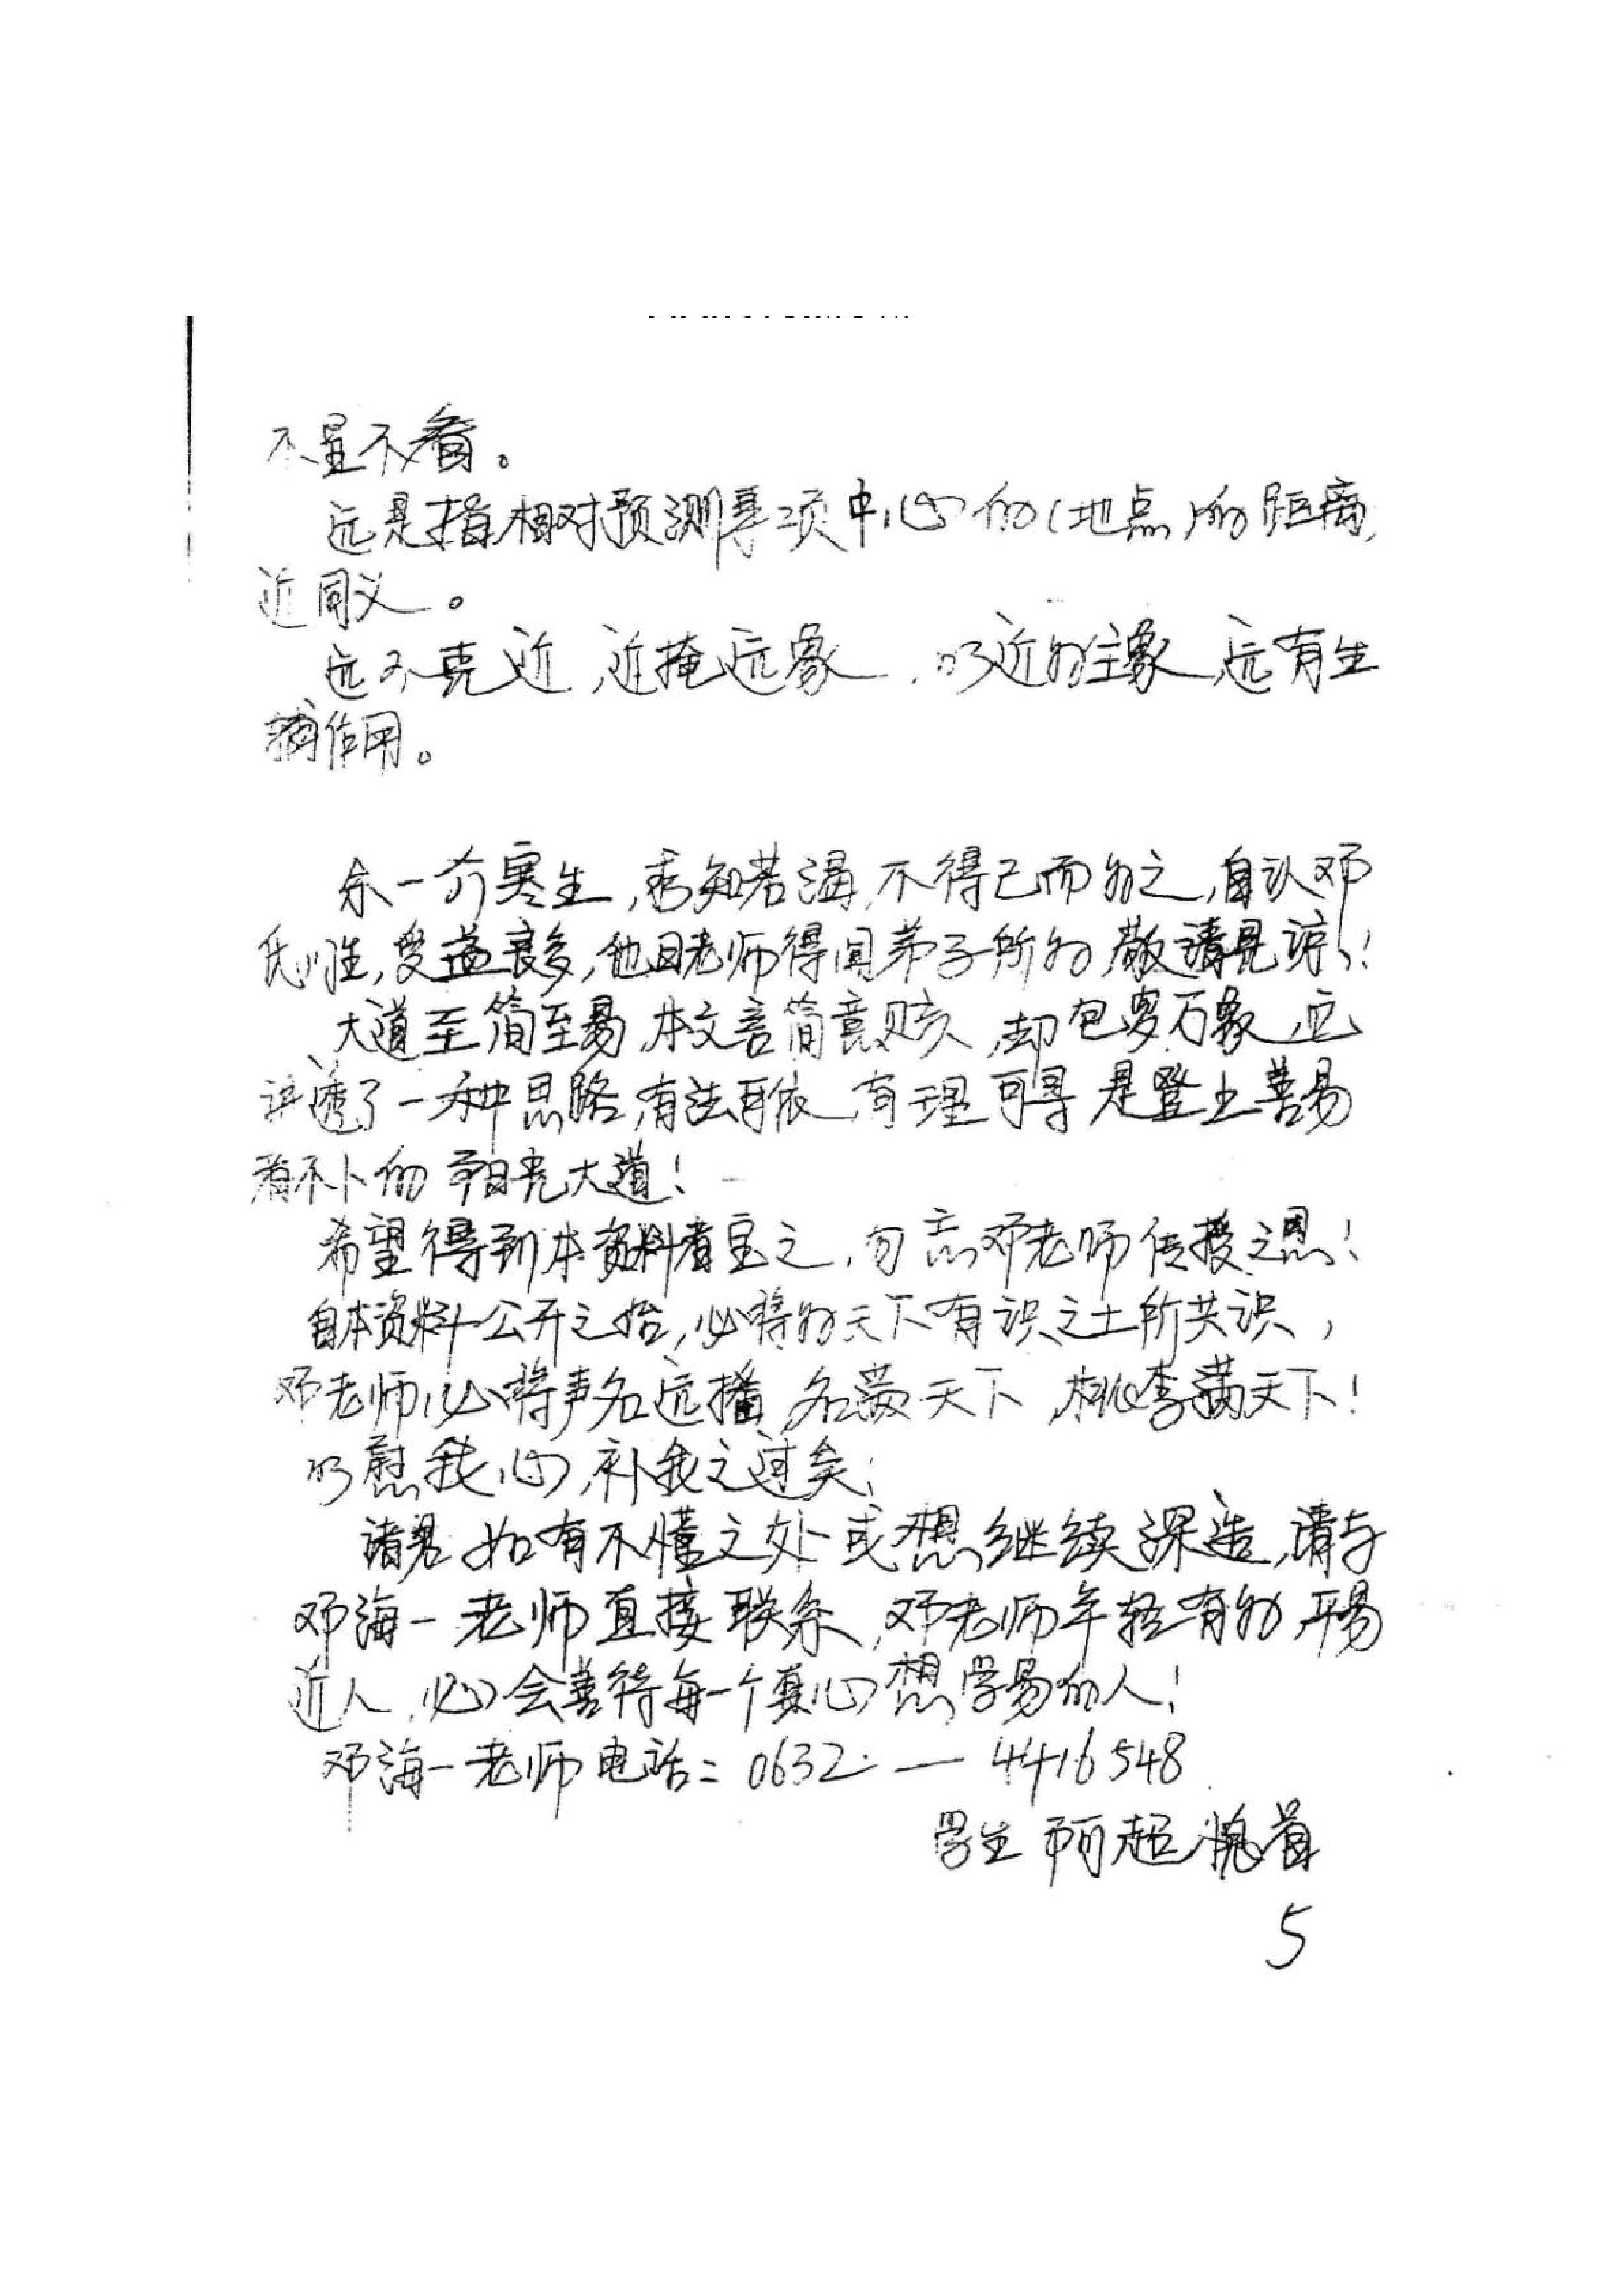 不显不看。
远是指相对预测事项中心的(地点)的距离,
近同义。
远不克近,近掩远象,以近为主象,远有生
辅作用。
余一介寒生,求知若渴,不得已而为之,自认邓
氏,受益良多,他日老师得闻弟子所为,敬请见谅!
大道至简至易,本文言简意赅,却包罗万象,它
讲透了一种思路,有法可依,有理可寻,是登上善易
者不卜的阳光大道!
希望得到本资料者宝之,勿忘邓老师传授之恩!
自本资料公开之始,必将为天下有识之士所共识,
邓老师必将声名远播,名满天下,桃李满天下!
以慰我心,补我之过矣!
诸君如有不懂之处或想继续深造,请与
邓海一老师直接联系,邓老师年轻有为,平易
近人,必会善待每一个真心想学易的人!
邓海一老师电话:0632—4416548
学生 阿超愧首
5